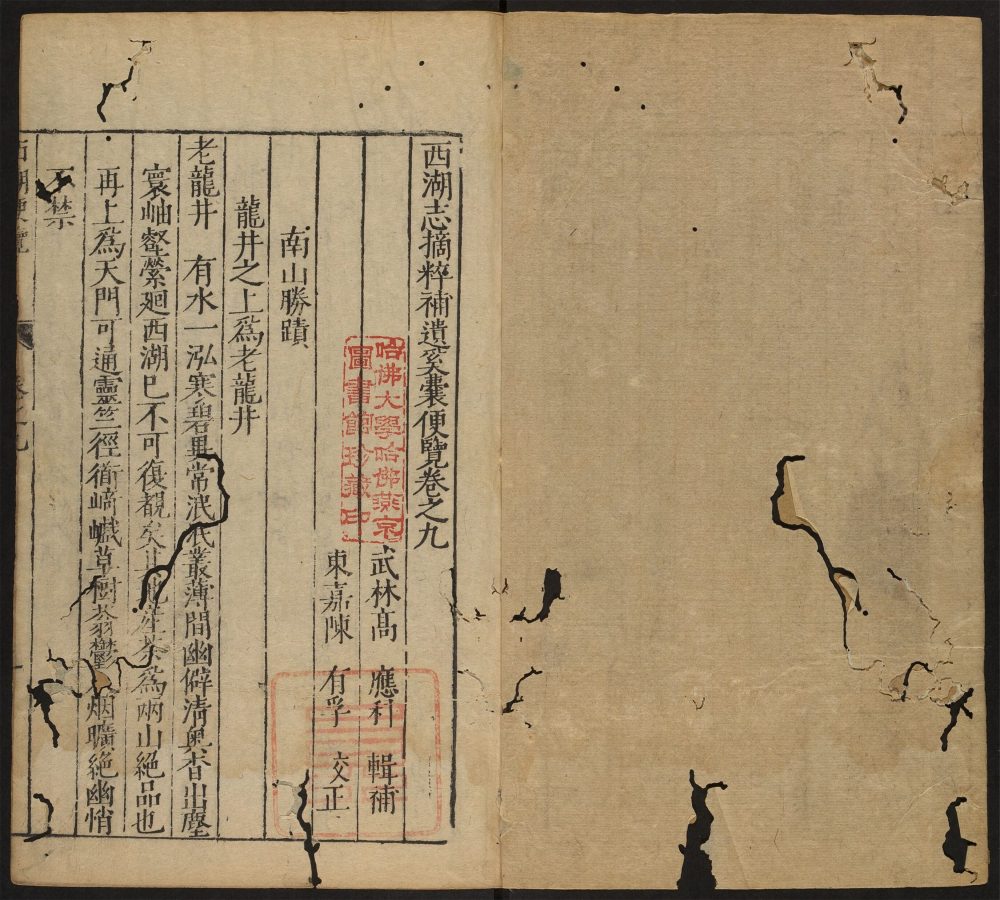 西湖志摘粹補遺奚囊便覽卷之九
武林高 應科 輯補
東嘉陳 有孚 校正
南山勝蹟
龍井之上爲老龍井
老龍井 有水一泓寒碧異常泯泯叢薄間幽僻淸奥杳出塵
寰岫壑縈廻西湖已不可復覩矣其地產茶爲兩山絕品也
再上爲天門可通靈竺徑衟崎巇草樹蓊鬱烟曠絕幽悄
不禁
西湖便覽 卷之九
哈佛大學哈佛燕京
圖書館珍藏印